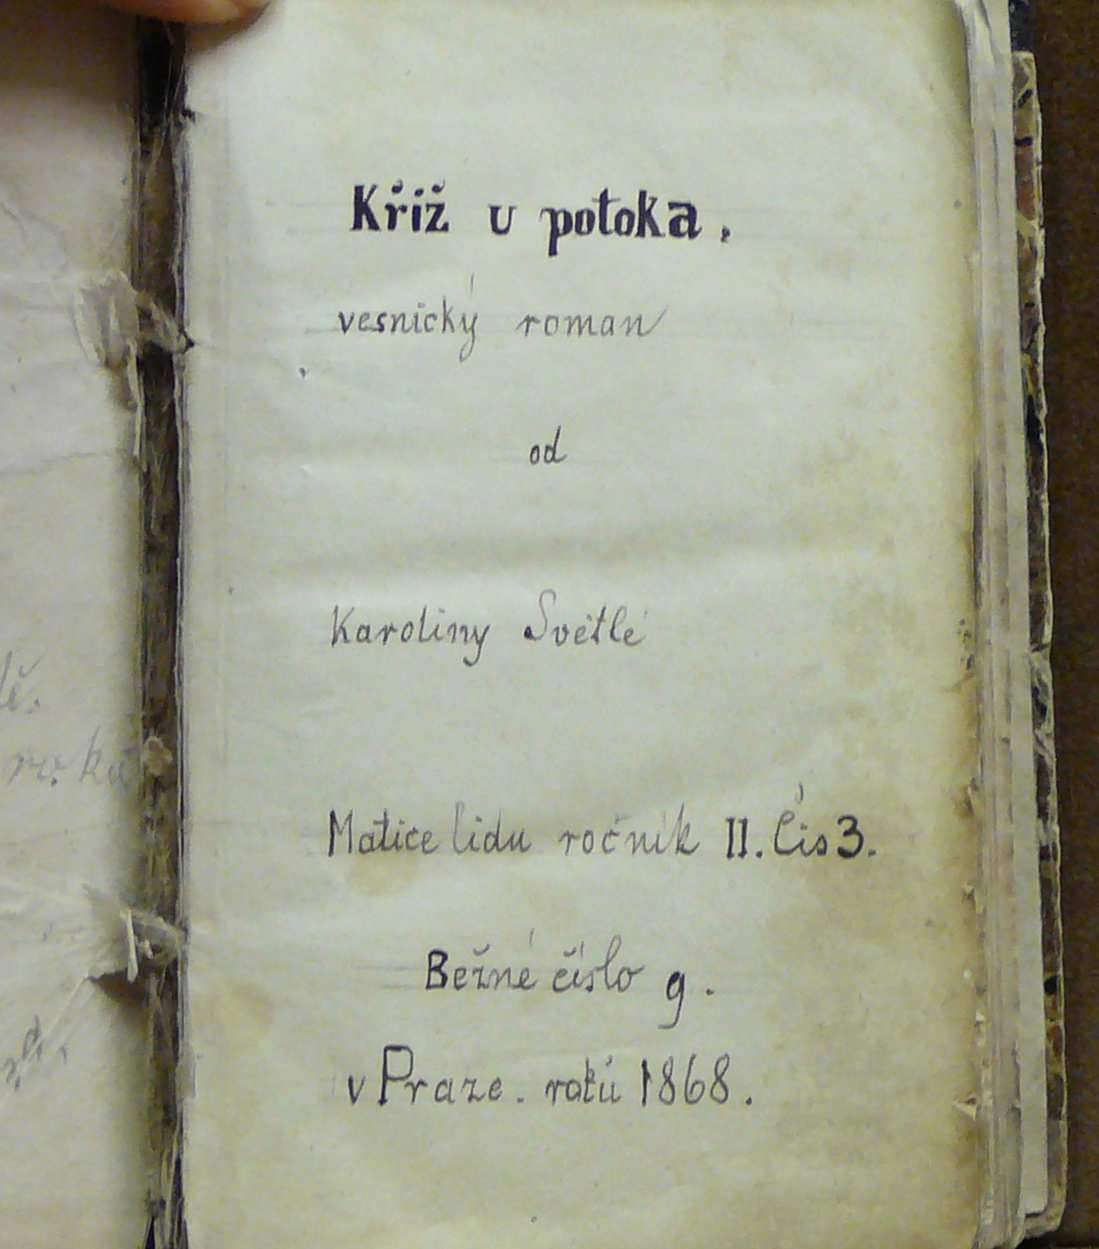 Křiž u potoka.
vesnický roman
od
Karoliny Světlé
Matice lidu ročnik II. Čís 3.
Bežné číslo 9.
v Praze. roků 1868.